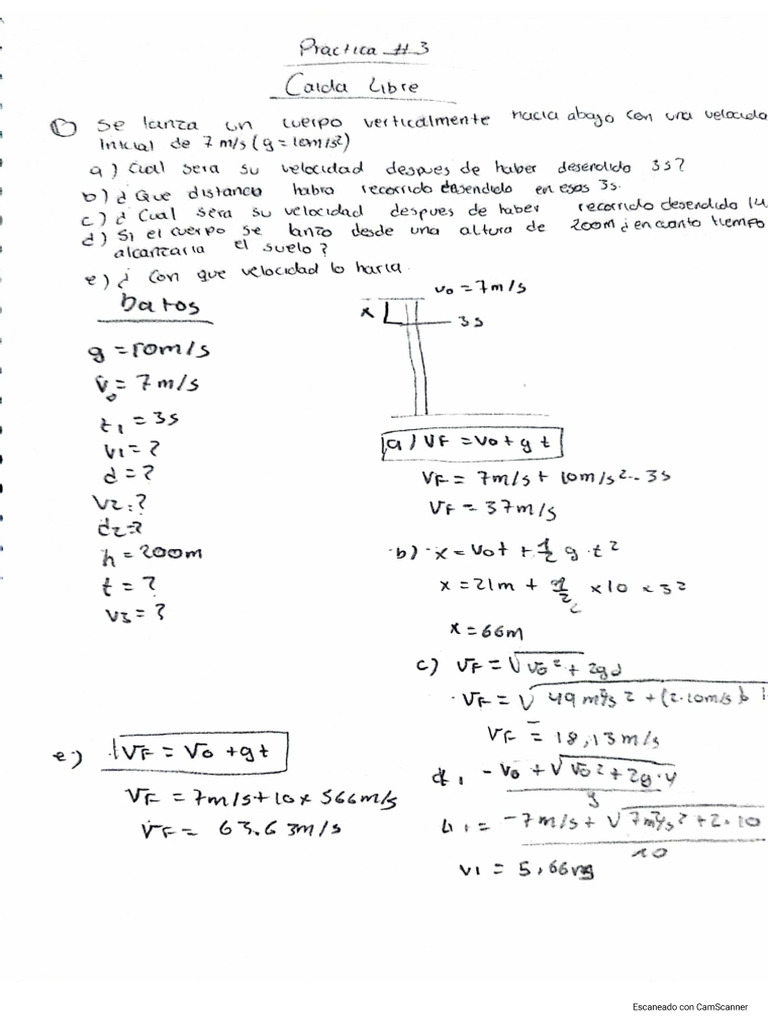 Practica #3
Caida Libre
① Se lanza un cuerpo verticalmente hacia abajo con una velocida
inicial de 7 m/s (g = 10m/s²)
a) Cual sera su velocidad despues de haber desendido 3s?
b) ¿ Que distancia habra recorrido desendido en esos 3s.
c) ¿ Cual sera su velocidad despues de haber recorrido desendido 14
d) Si el cuerpo se lanzo desde una altura de 200m ¿ en cuanto tiempo
alcanzaria el suelo?
e) ¿ Con que velocidad lo haria.
Datos
g = 10m/s
V₀ = 7 m/s
t₁ = 3s
V1 = ?
d = ?
V2 = ?
d2 = ?
h = 200m
t = ?
V3 = ?
v₀ = 7m/s
x
3s
a) VF = Vo + g t
VF = 7m/s + 10m/s² . 3s
VF = 37m/s
b) x = Vot + 1/2 g . t²
x = 21m + 1/2 x 10 x 3²
x = 66m
c) VF = √Vo² + 2gd
VF = √49 m²/s² + (2.10m/s
VF = 18,13m/s
d, -Vo + √Vo² + 2g.y
g
= -7m/s + √7m²/s² + 2.10
10
= 5,66
e) VF = Vo + gt
VF = 7m/s + 10 x 566m/s
VF = 63.63m/s
Escaneado con CamScanner